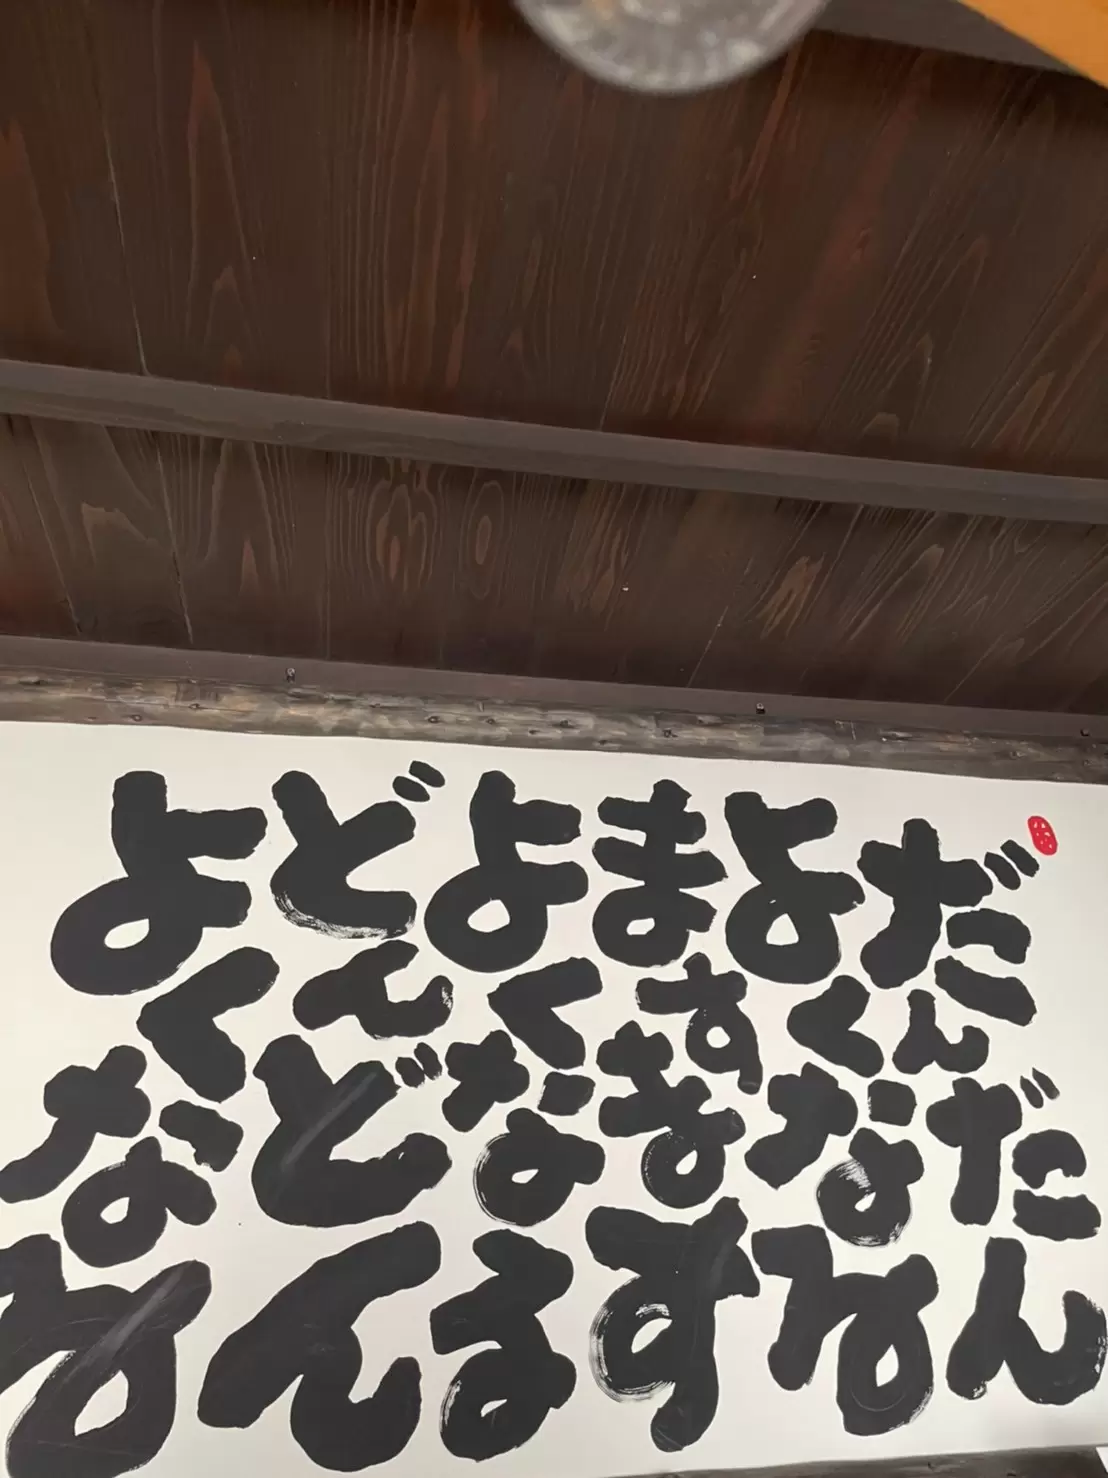 だんだん
よくなる
ますます
よくなる
どんどん
よくなる